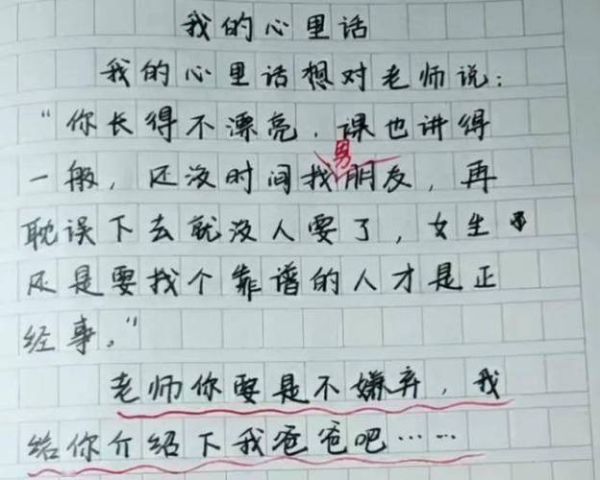 我的心里话
我的心里话想对老师说:
“你长得不漂亮,课也讲得
一般,还没时间找男朋友,再
耽误下去就没人要了,女生
还是要找个靠谱的人才是正
经事。”
老师你要是不嫌弃,我
给你介绍下我爸爸吧……